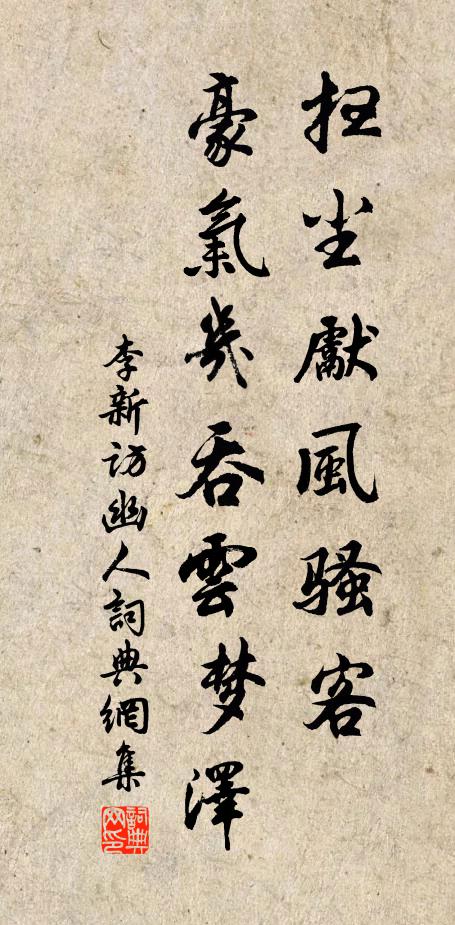 扫尘獻風騷客
豪氣幾吞雲梦澤
李新訪幽人詞典網集
詞典网印